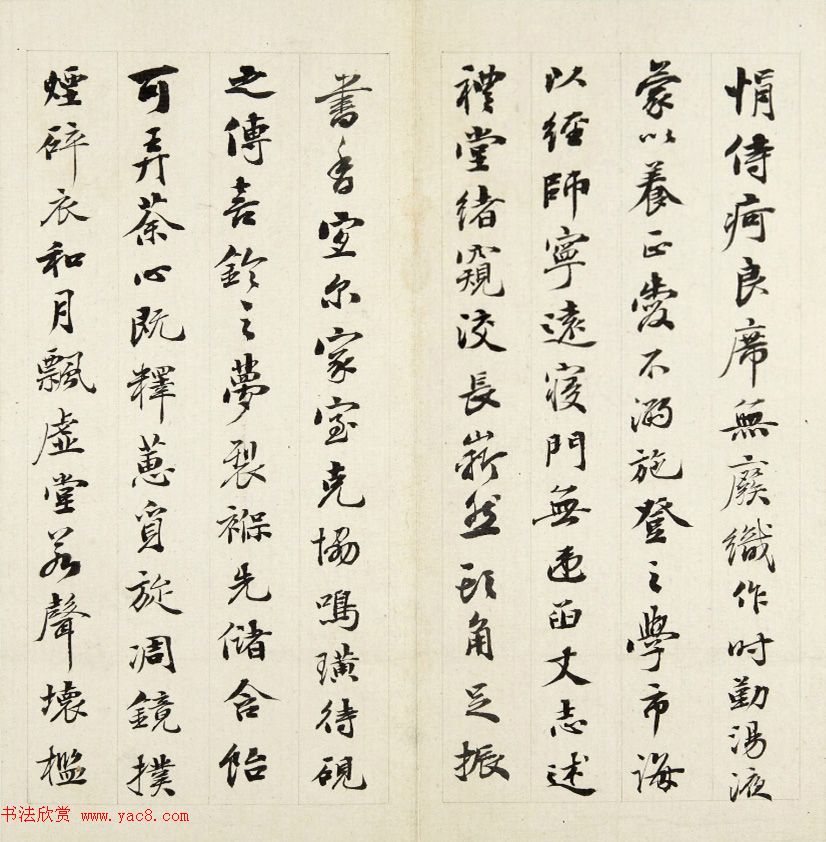 悁侍疴良席無廢織作时勤湯液
蒙以養正愛不溺施登之學市誨
以經師寧遠寢門無違臿丈志述
禮堂緒窺洨長嶄然頭角足振
書香室尔家室克協鳴璜待硯
之傳喜鈴之夢製褓先儲含飴
可弄荼心既釋蕙質旋凋鏡撲
煙碎衣和月飄虛堂若聲壞檻
书法欣赏 www.yac8.com